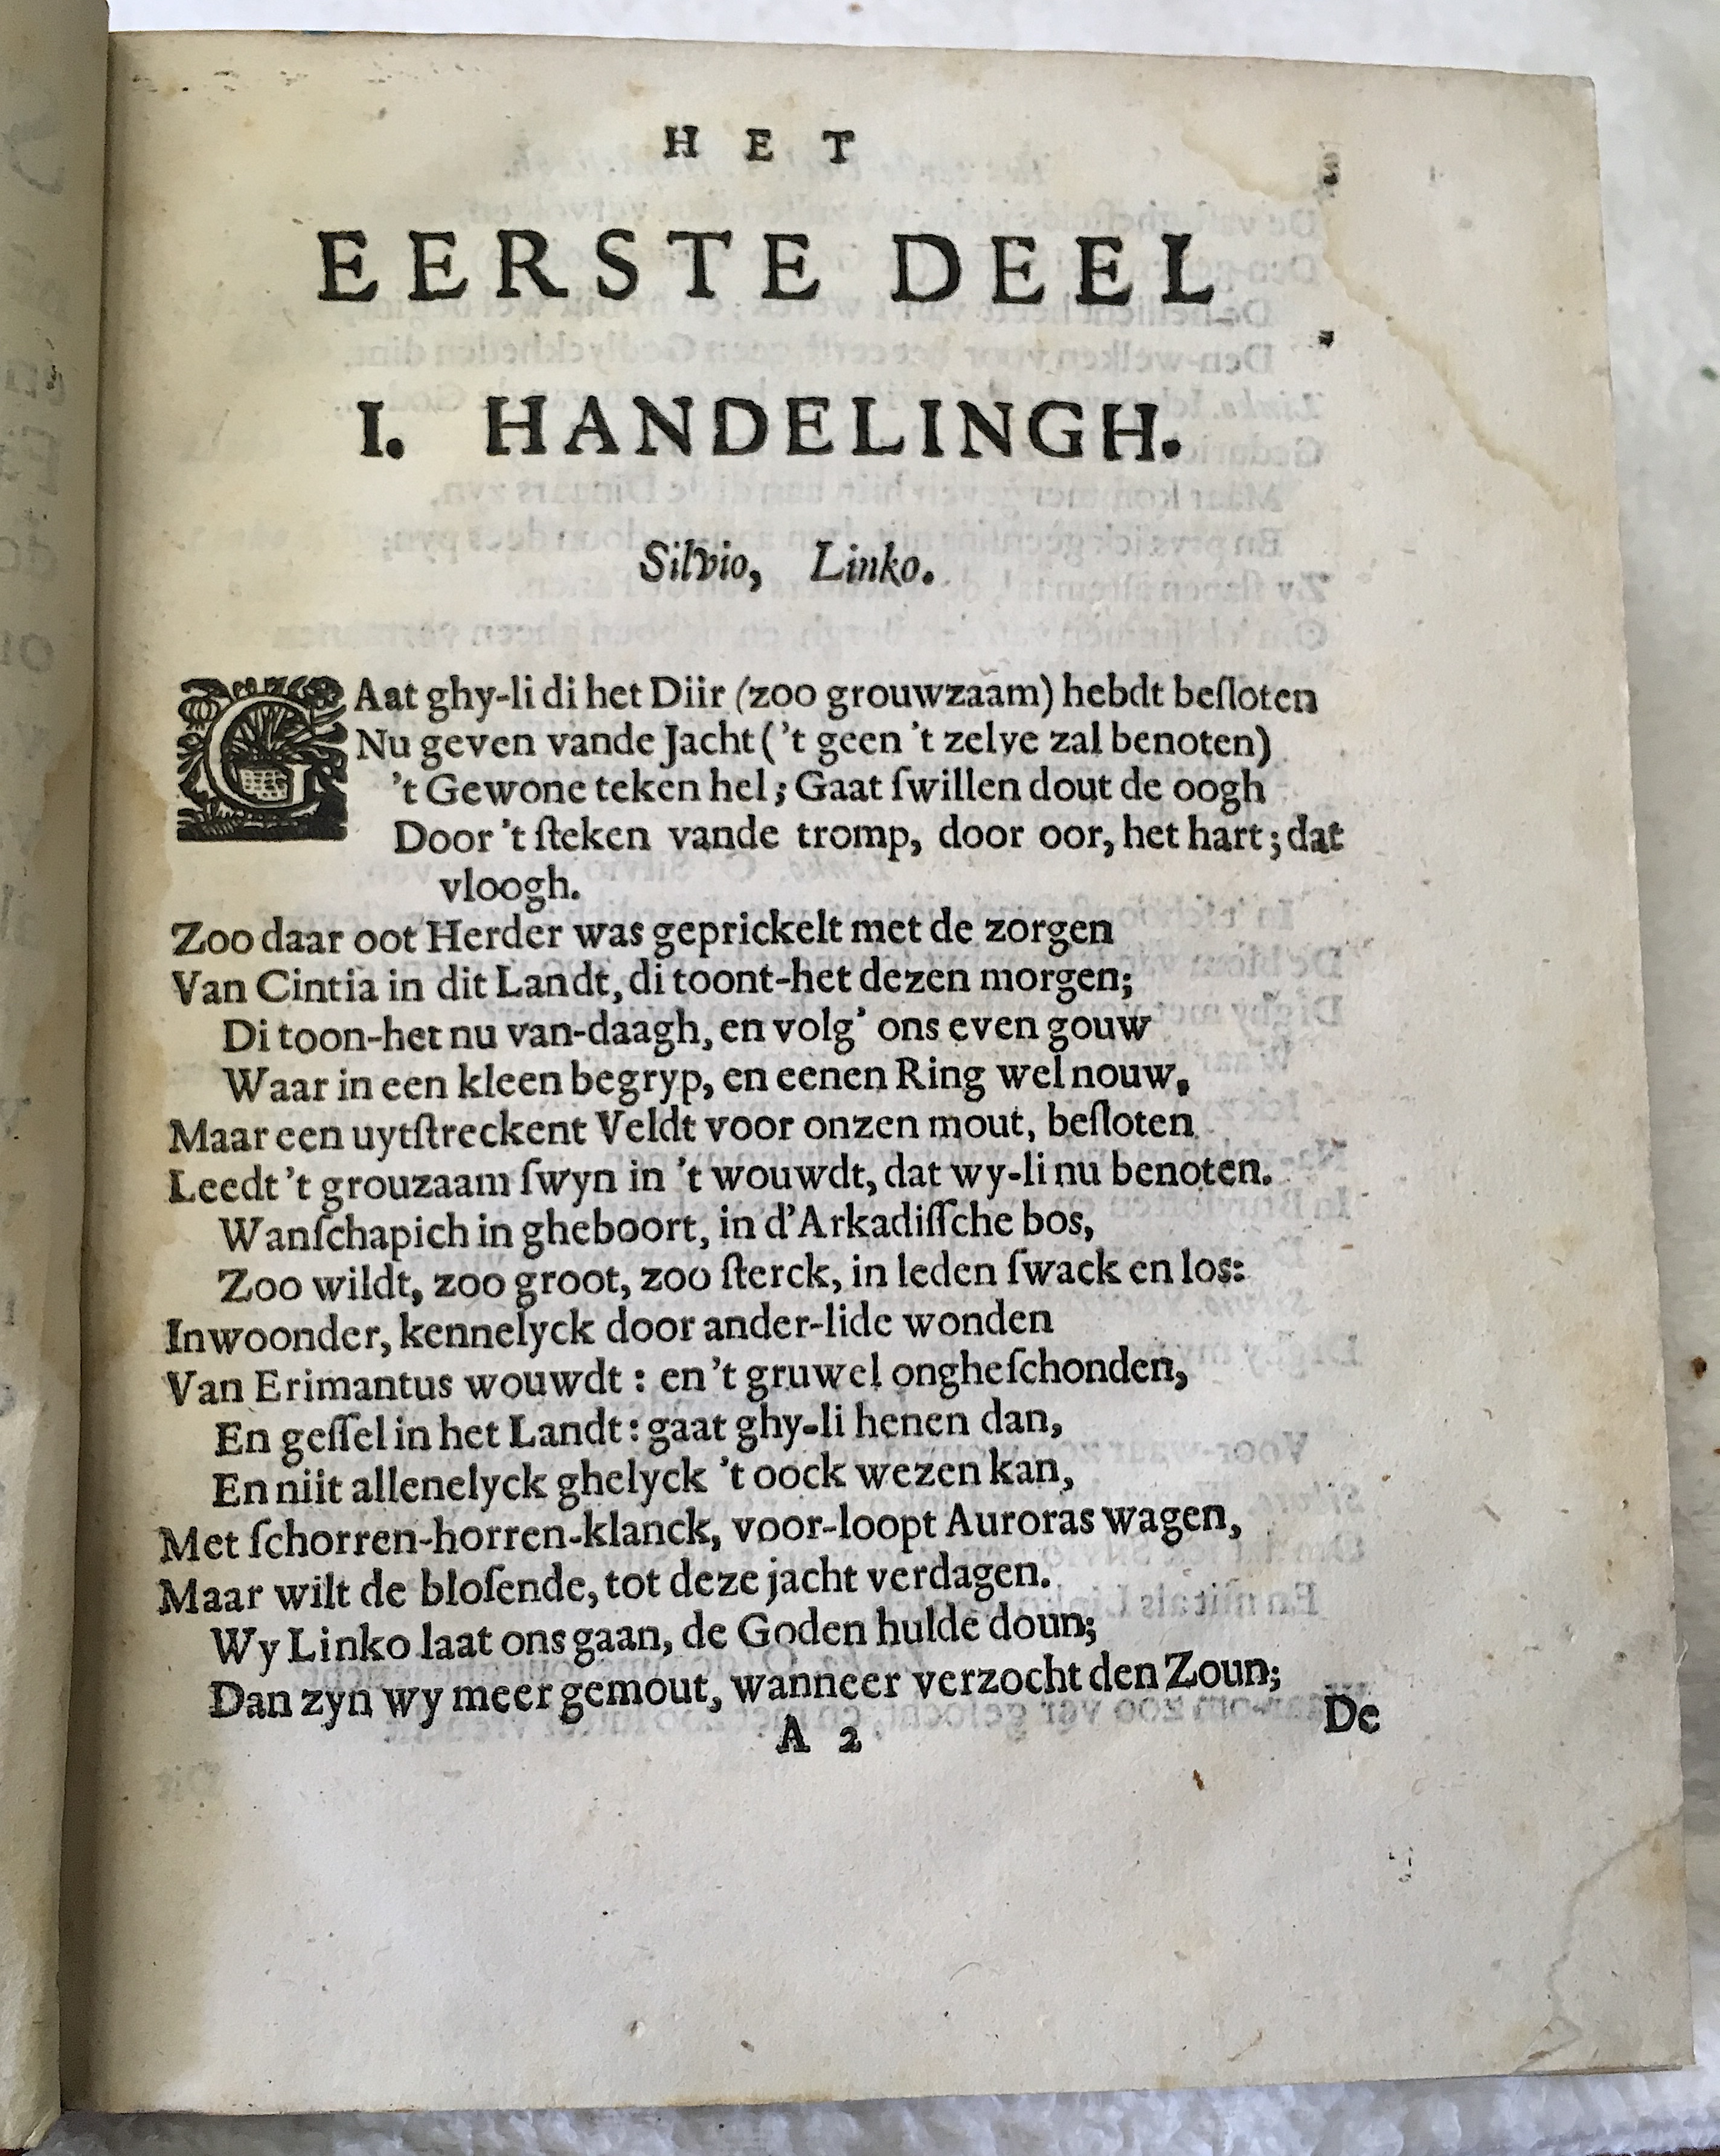 HET
EERSTE DEEL
I. HANDELINGH.
Silvio, Linko.
GAat ghy-li di het Diir (zoo grouwzaam) hebdt beſloten
Nu geven vande Jacht ('t geen 't zelve zal benoten)
't Gewone teken hel; Gaat ſwillen dout de oogh
Door 't ſteken vande tromp, door oor, het hart; dat
vloogh.
Zoo daar oot Herder was geprickelt met de zorgen
Van Cintia in dit Landt, di toont-het dezen morgen;
Di toon-het nu van-daagh, en volg' ons even gouw
Waar in een kleen begryp, en eenen Ring wel nouw,
Maar een uytſtreckent Veldt voor onzen mout, beſloten
Leedt 't grouzaam ſwyn in 't wouwdt, dat wy-li nu benoten.
Wanſchapich in gheboort, in d'Arkadiſſche bos,
Zoo wildt, zoo groot, zoo ſterck, in leden ſwack en los:
Inwoonder, kennelyck door ander-lide wonden
Van Erimantus wouwdt : en 't gruwel ongheſchonden,
En geſſel in het Landt : gaat ghy-li henen dan,
En niit allenelyck ghelyck 't oock wezen kan,
Met ſchorren-horren-klanck, voor-loopt Auroras wagen,
Maar wilt de bloſende, tot deze jacht verdagen.
Wy Linko laat ons gaan, de Goden hulde doun;
Dan zyn wy meer gemout, wanneer verzocht den Zoun;
A 2
De